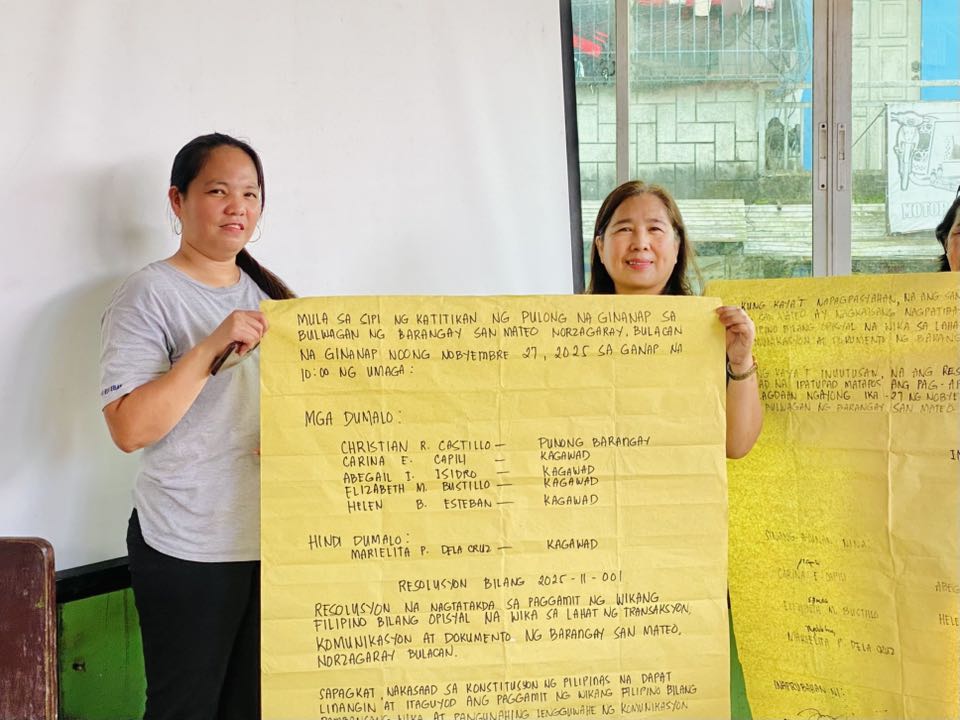 MULA SA SIPI NG KATITIKAN NG PULONG NA GINANAP SA
BULWAGAN NG BARANGAY SAN MATEO NORZAGARAY, BULACAN
NA GINANAP NOONG NOBYEMBRE 27, 2025 SA GANAP NA
10:00 NG UMAGA:
MGA DUMALO:
CHRISTIAN R. CASTILLO — PUNONG BARANGAY
CARINA E. CAPILI — KAGAWAD
ABEGAIL I. ISIDRO — KAGAWAD
ELIZABETH M. BUSTILLO — KAGAWAD
HELEN B. ESTEBAN — KAGAWAD
HINDI DUMALO:
MARIELITA P. DELA CRUZ — KAGAWAD
RESOLUSYON BILANG 2025-11-001
RESOLUSYON NA NAGTATAKDA SA PAGGAMIT NG WIKANG
FILIPINO BILANG OPISYAL NA WIKA SA LAHAT NG TRANSAKSYON,
KOMUNIKASYON AT DOKUMENTO NG BARANGAY SAN MATEO,
NORZAGARAY BULACAN.
SAPAGKAT, NAKASAAD SA KONSTITUSYON NG PILIPINAS NA DAPAT
LINANGIN AT ITAGUYOD ANG PAGGAMIT NG WIKANG FILIPINO BILANG
PAMBANSANG WIKA AT PANGUNAHING LENGGUWAHE NG KOMUNIKASYON
KUNG KAYA'T NAPAGPASYAHAN, NA ANG
MATEO AY NAGKAISANG
BILANG OPISYAL NA WIKA SA LAHA
AT DOKUMENTO NG BARANG
KAYA'T INUUTUSAN, NA ANG RES
NA IPATUPAD MATAPOS ANG PAG-AP
NGAYONG IKA-27 NG NOBYE
BARANGAY SAN MATEO
SINANG-AYUNAN NINA:
CARINA E. CAPILI
ELIZABETH M. BUSTILLO
MARIELITA P. DELA CRUZ
ABE
HELE
INAPRUBAHAN NI:
MOTOR